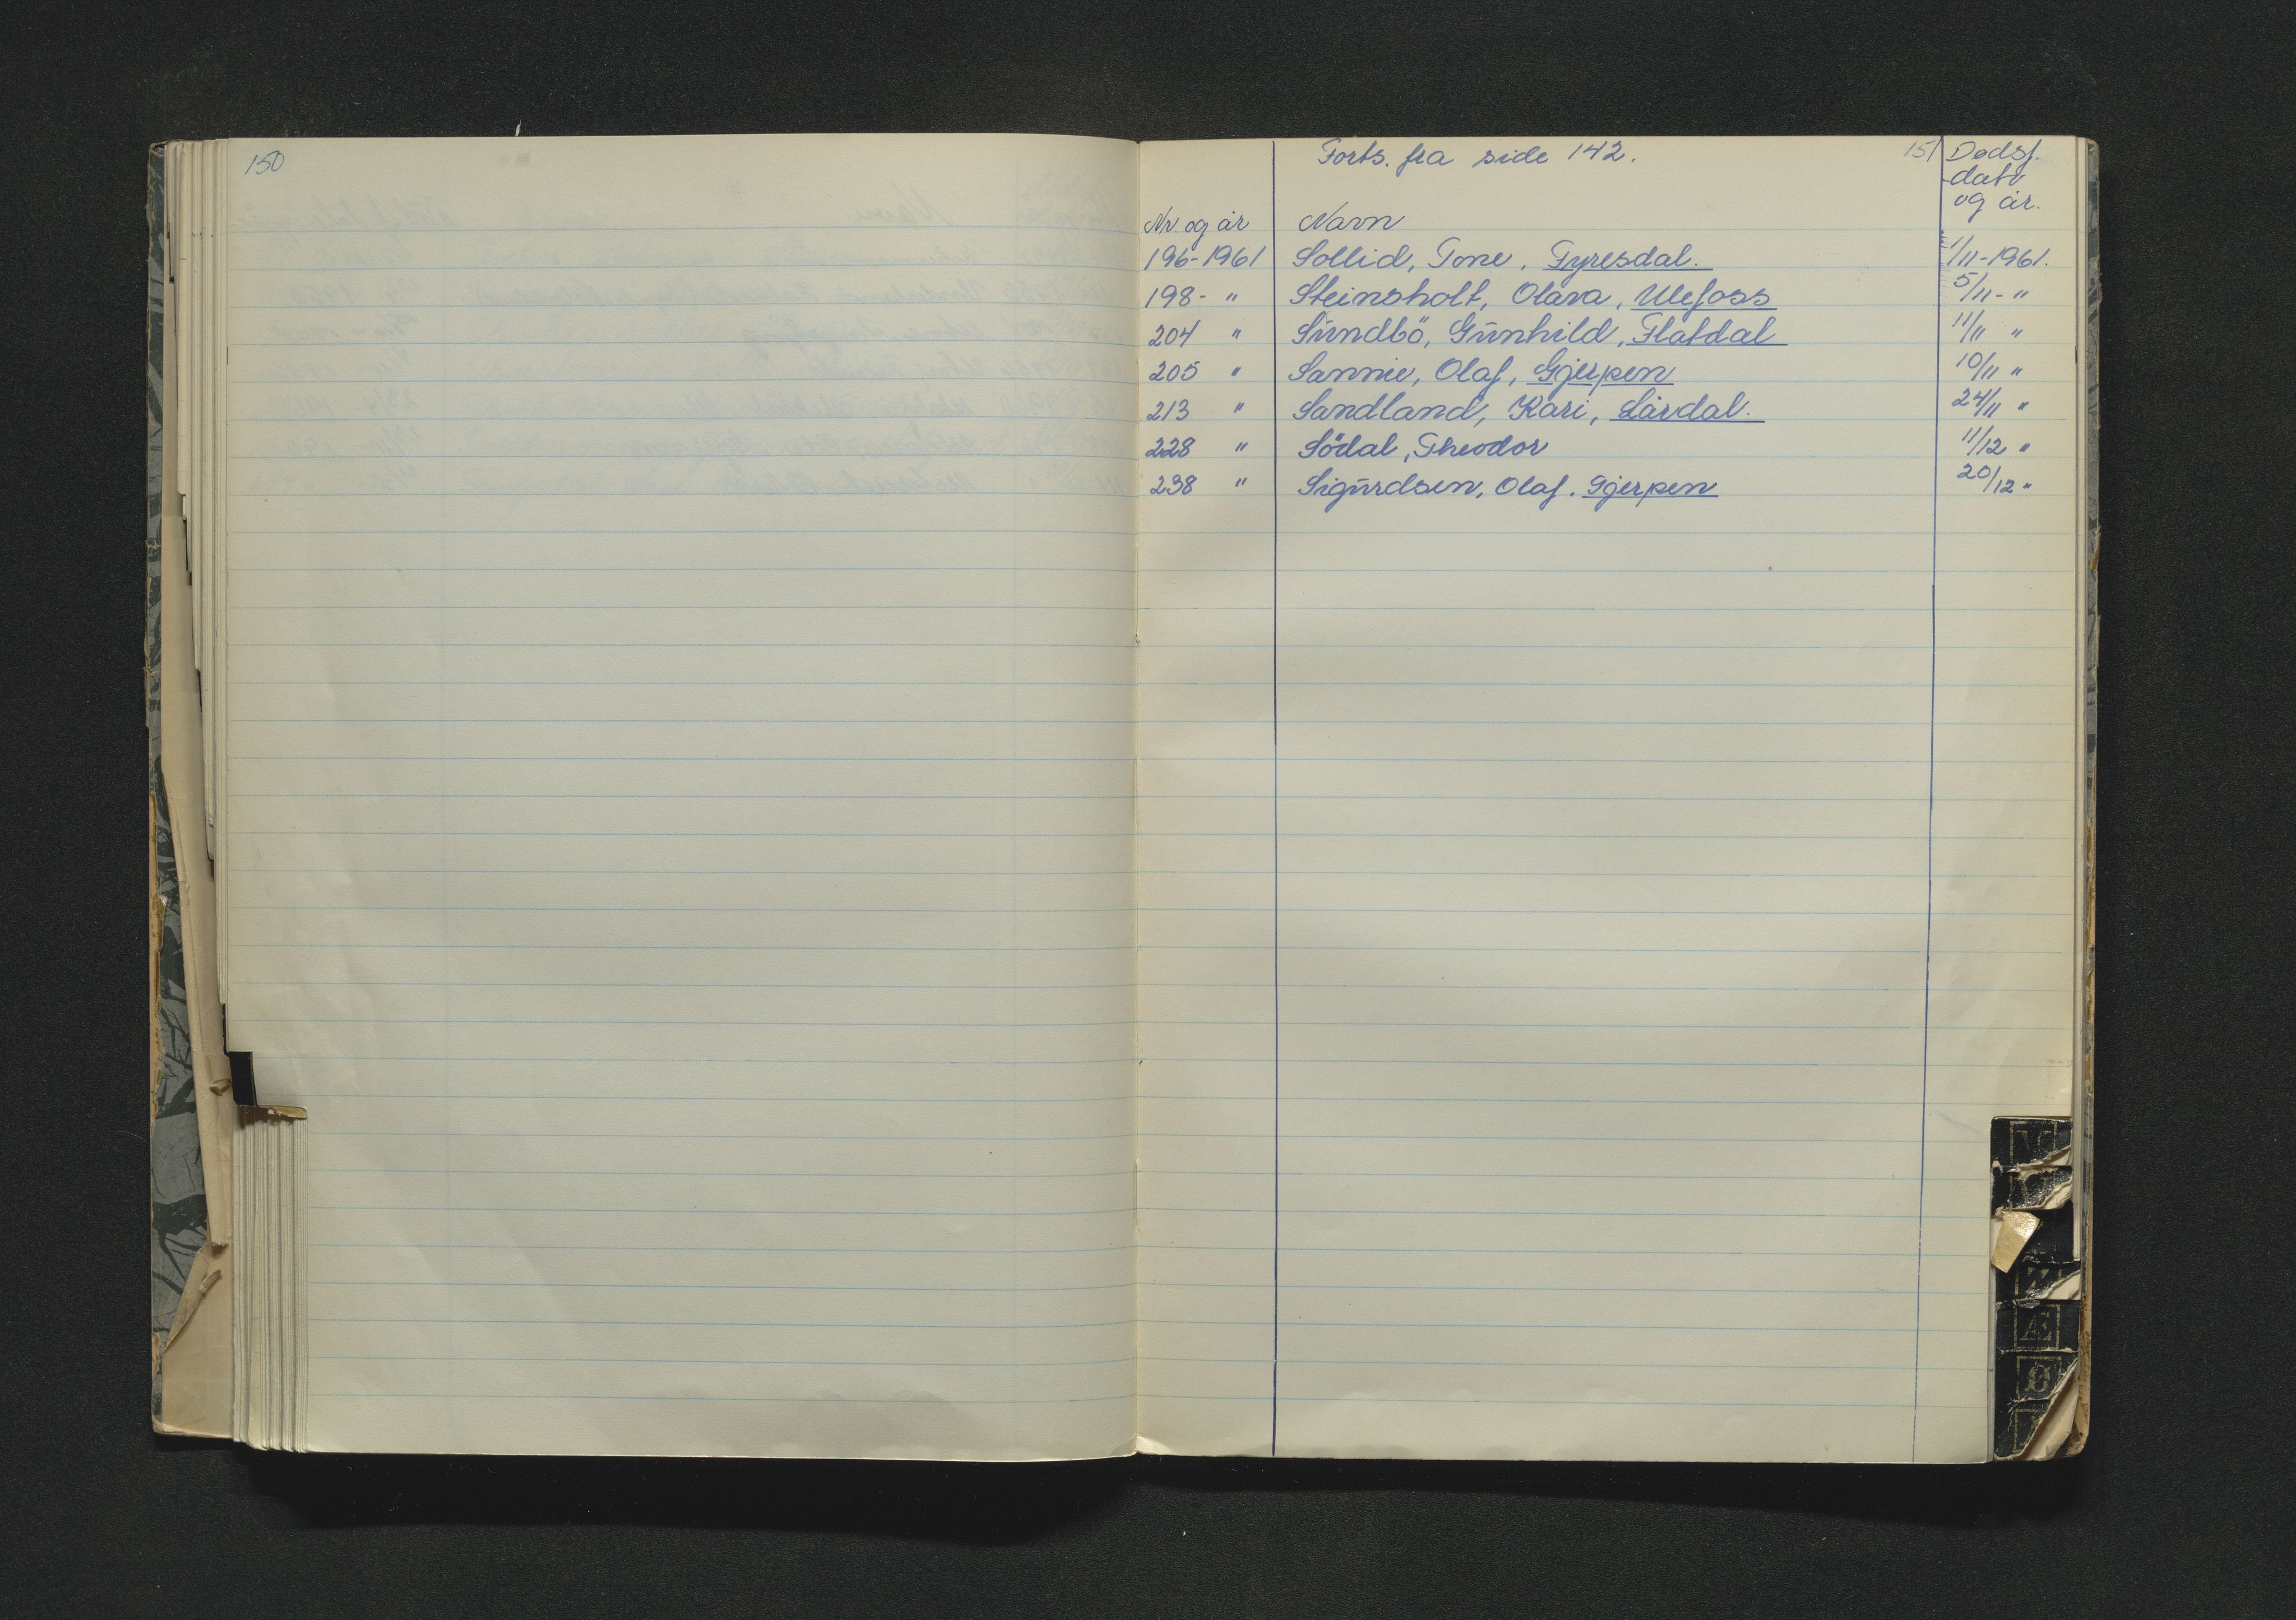 150
Forts. fra side 142.
151
Dødsf.
-dato
og år.
Nr. og år Navn
196-1961 Sollid, Tone, Tyresdal. 1/11-1961.
198- " Steinsholt, Olava, Ulefoss 5/11- "
204 " Sundbö, Gunhild, Flatdal 11/11 "
205 " Sannie, Olaf, Gjerpen 10/11 "
213 " Sandland, Kari, Lårdal. 24/11 "
228 " Södal, Theodor 11/12 "
238 " Sigurdsen, Olaf. Gjerpen 20/12 "
Æ
Ø